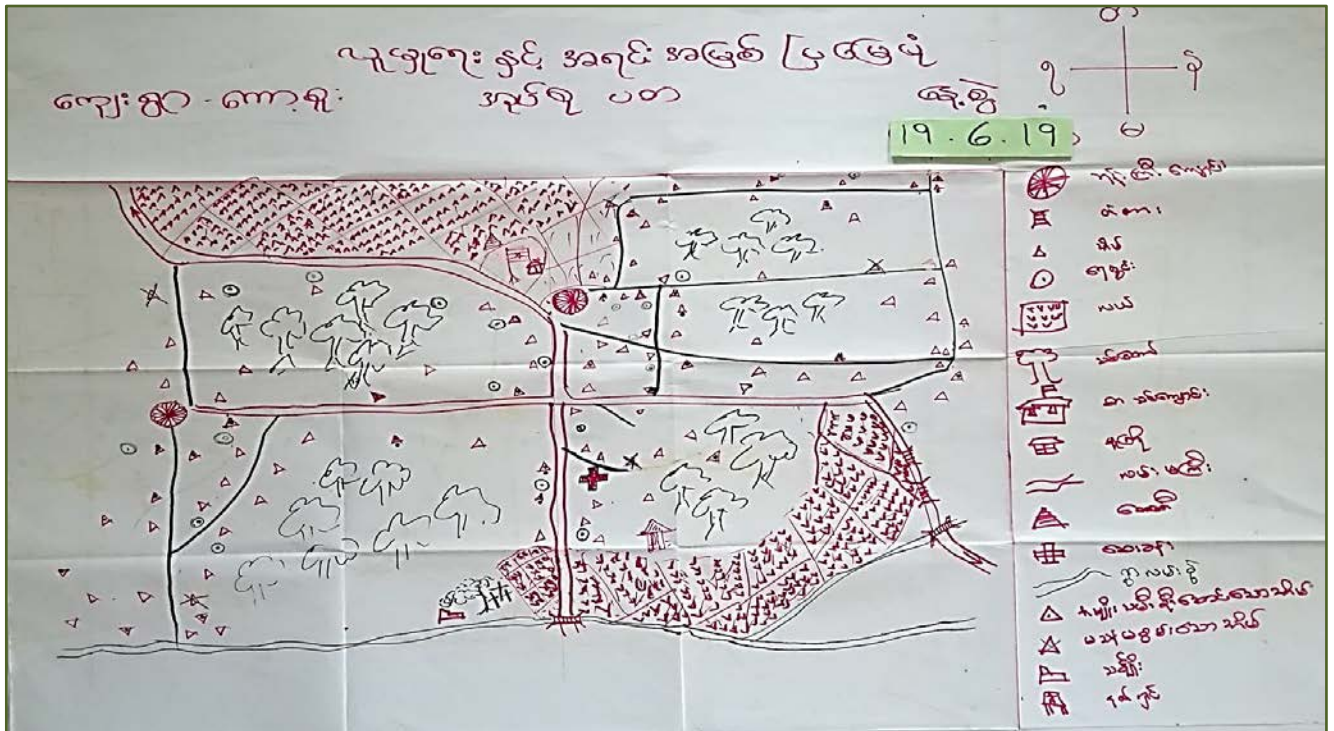 လူမှုရေး နှင့် အရင်းအမြစ် ပြ မြေပုံ
ကျေးရွာ - ကော့
နေ့စွဲ
19.6.19
ဘုန်းကြီးကျောင်း
တံတား
အိမ်
ရေတွင်း
လယ်
သစ်တော
စာသင်ကျောင်း
လမ်းမကြီး
စေတီ
ဆေးခန်း
ရွာလမ်းခွဲ
အမျိုးသမီးဦးဆောင်သောအိမ်
မသန်မစွမ်းသောအိမ်
သင်္ချိုင်း
နတ်ကွင်း